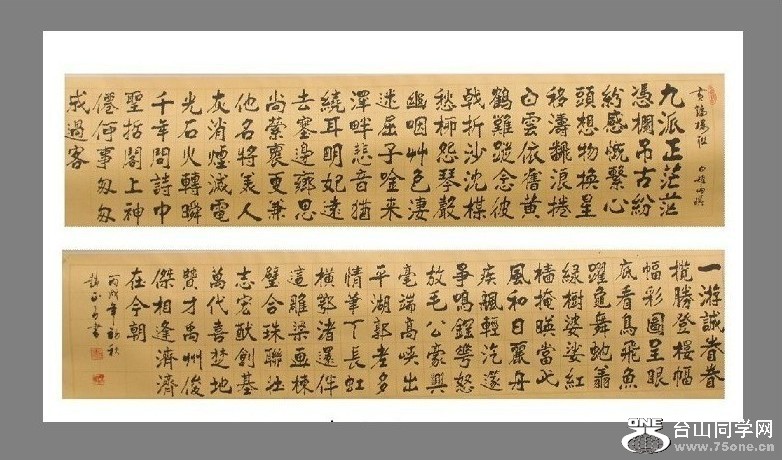 九派正茫茫
憑欄吊古紛
紛感慨繫心
頭想物換星
移濤飜浪捲
白雲依舊黃
鶴難蹤念彼
戟折沙沈楳
愁柳怨琴聲
幽咽艸色淒
迷屈子唫來
澤畔悲音猶
繞耳明妃遠
去塞邊鄉思
尚縈襄更兼
他名將美人
灰消煙滅電
光石火轉瞬
千年問詩中
聖括閣上神
僊何事匆匆
成過客
一游誠眷眷
攬勝登樓幅
幅彩圖呈眼
底看鳥飛魚
躍龜舞虵翥
綠樹婆娑紅
檣掩暎當此
風和日麗舟
疾飄輕汽
爭鳴鑼怒
放毛公豪興
毫端高峽出
平湖郭老多
情筆下長虹
橫鄂渚還伴
這雕梁畫棟
璧合珠聯壯
志宏猷創基
萬代喜楚地
賢才禹州俊
傑相逢濟濟
在今朝
丙戌年初秋
書
ONE
台山同学网
www.75one.cn